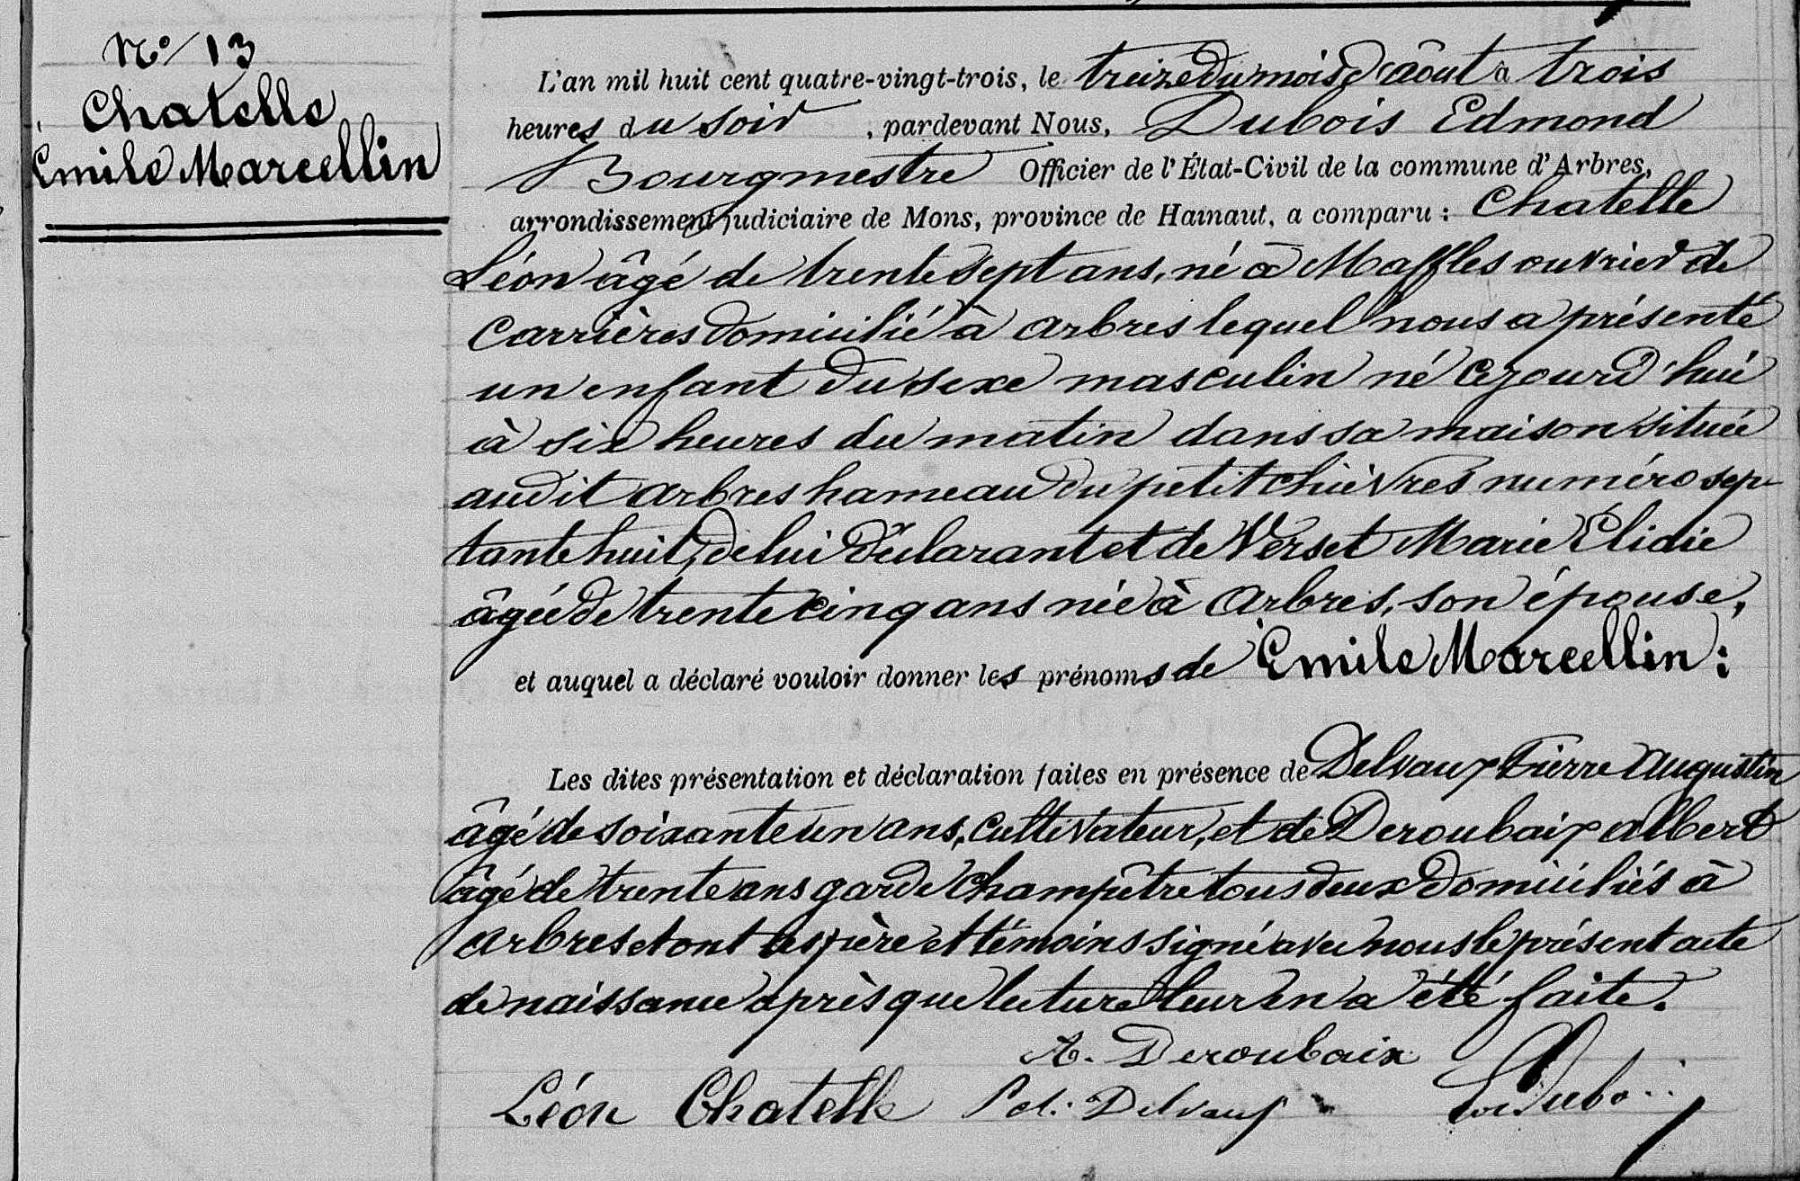 N° 13
Chatelle
Emile Marcellin
L'an mil huit cent quatre-vingt-trois, le treize du mois d'août à trois
heures du soir, pardevant Nous, Dubois Edmond
Bourgmestre Officier de l'État-Civil de la commune d'Arbres,
arrondissement judiciaire de Mons, province de Hainaut, a comparu : Chatelle
Léon âgé de trente sept ans, né à Maffles ouvrier de
carrières domicilié à Arbres lequel nous a présenté
un enfant du sexe masculin né cejourd'hui
à six heures du matin dans sa maison située
audit Arbres hameau du petit chièvres numéro sep
tante huit, de lui déclarant et de Verset Marie Élidie
âgée de trente cinq ans née à Arbres, son épouse,
et auquel a déclaré vouloir donner les prénoms de Emile Marcellin :
Les dites présentation et déclaration faites en présence de Delvaux Pierre Augustin
âgé de soixante un ans, cultivateur, et de Deroubaix Albert
âgé de trente ans garde champêtre tous deux domiciliés à
Arbres et ont les père et témoins signé avec nous le présent acte
de naissance après que lecture leur en a été faite.
A. Deroubaix
Léon Chatelle Delvaux Dubois